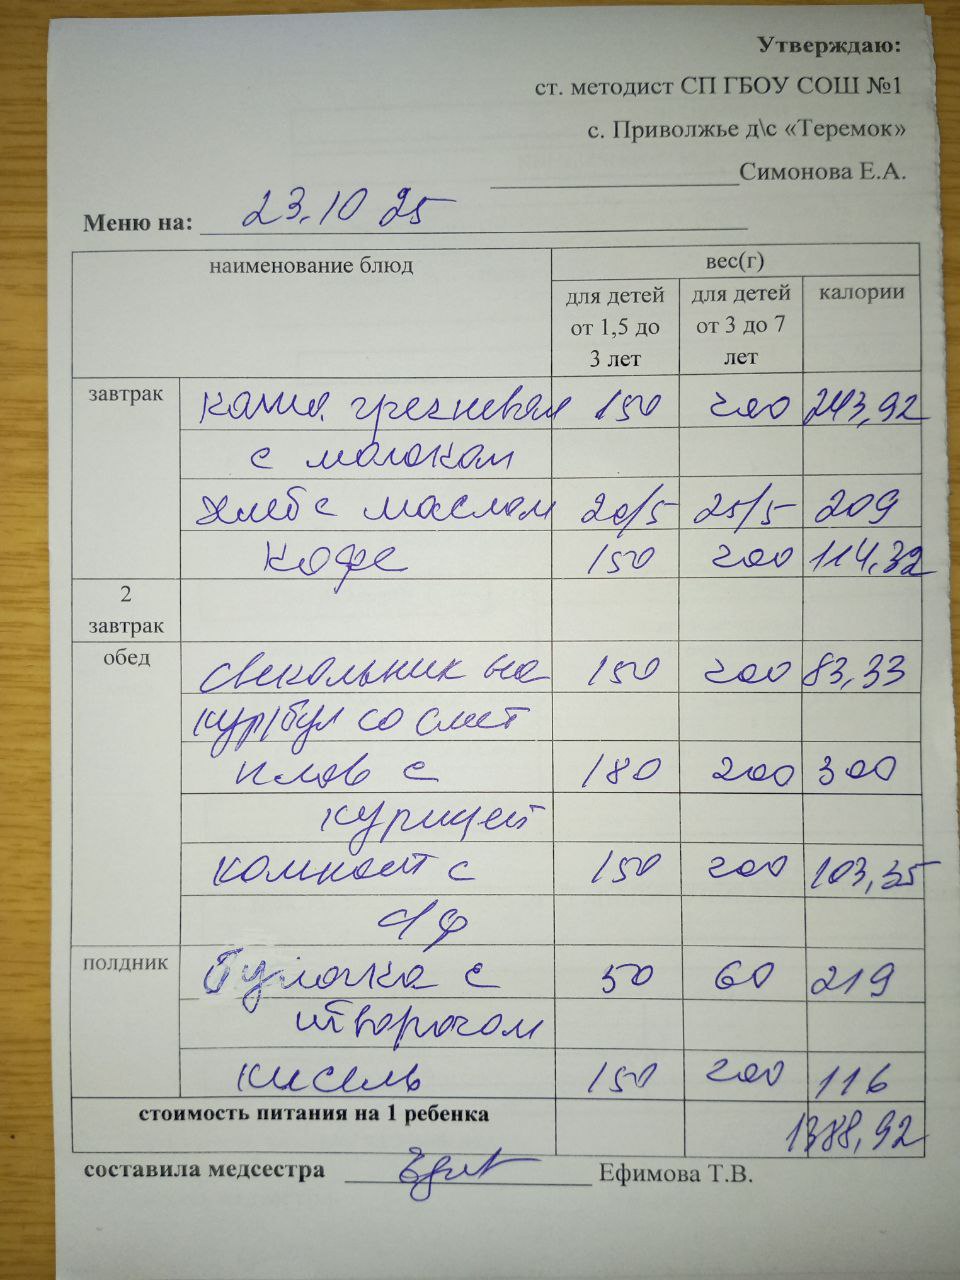 Утверждаю:
ст. методист СП ГБОУ СОШ №1
с. Приволжье д\с «Теремок»
Симонова Е.А.
Меню на: 23.10 25
наименование блюд вес(г)
для детей от 1,5 до 3 лет для детей от 3 до 7 лет калории
завтрак каша гречневая 150 200 243,92
с молоком
хлеб с маслом 20/5 25/5 209
кофе 150 200 114,32
2 завтрак
обед свекольник на 150 200 83,33
кур/бул со смет
плов с 180 200 300
курицей
компот с 150 200 103,35
с/ф
полдник Булочка с 50 60 219
творогом
кисель 150 200 116
стоимость питания на 1 ребенка 1388,92
составила медсестра Ефимова Т.В.